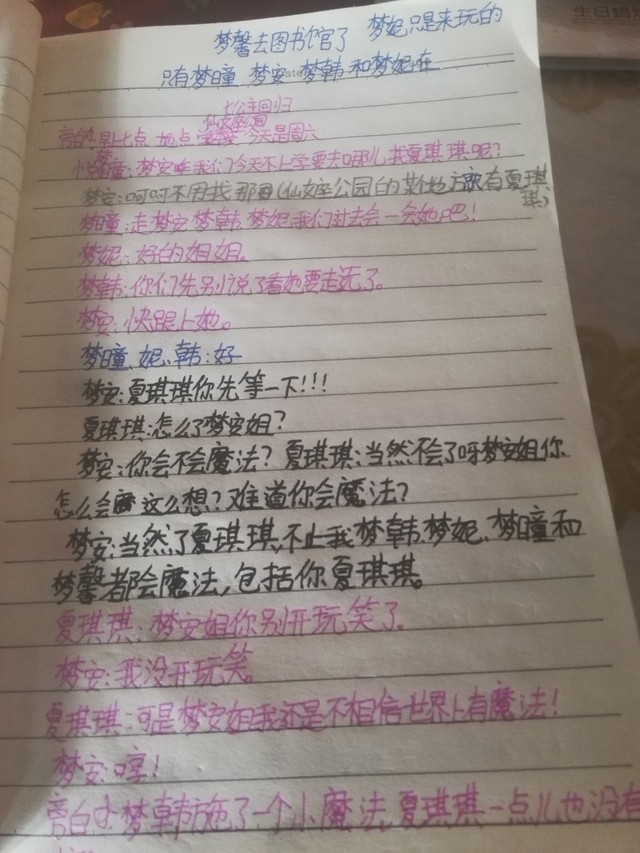 生日蜡
梦馨去图书馆了 梦妮只是来玩的
只有梦瞳 梦安 梦韩 和梦妮在
Date
七公主回归
仙女座
旁白:早上七点 地点 今天是周六
梦瞳:梦安唯我们今天不上学要去哪儿找夏琪琪呢?
梦安:呵呵不用找那 (仙女座公园的某地方就有夏琪琪)
梦瞳:走梦安梦韩、梦妮我们过去会一会她吧!
梦妮:好的姐姐。
梦韩:你们先别说了看她要走远了。
梦安:快跟上她。
梦瞳、妮、韩:好
梦安:夏琪琪你先等一下!!!
夏琪琪:怎么了梦安姐?
梦安:你会不会魔法? 夏琪琪:当然不会了呀梦安姐你
怎么会 这么想?难道你会魔法?
梦安:当然了夏琪琪,不止我梦韩、梦妮、梦瞳和
梦馨都会魔法,包括你夏琪琪。
夏琪琪:梦安姐你别开玩笑了。
梦安:我没开玩笑。
夏琪琪:可是梦安姐我还是不相信世界上有魔法!
梦安:哼!
旁白:梦韩施了一个小魔法,夏琪琪一点儿也没有